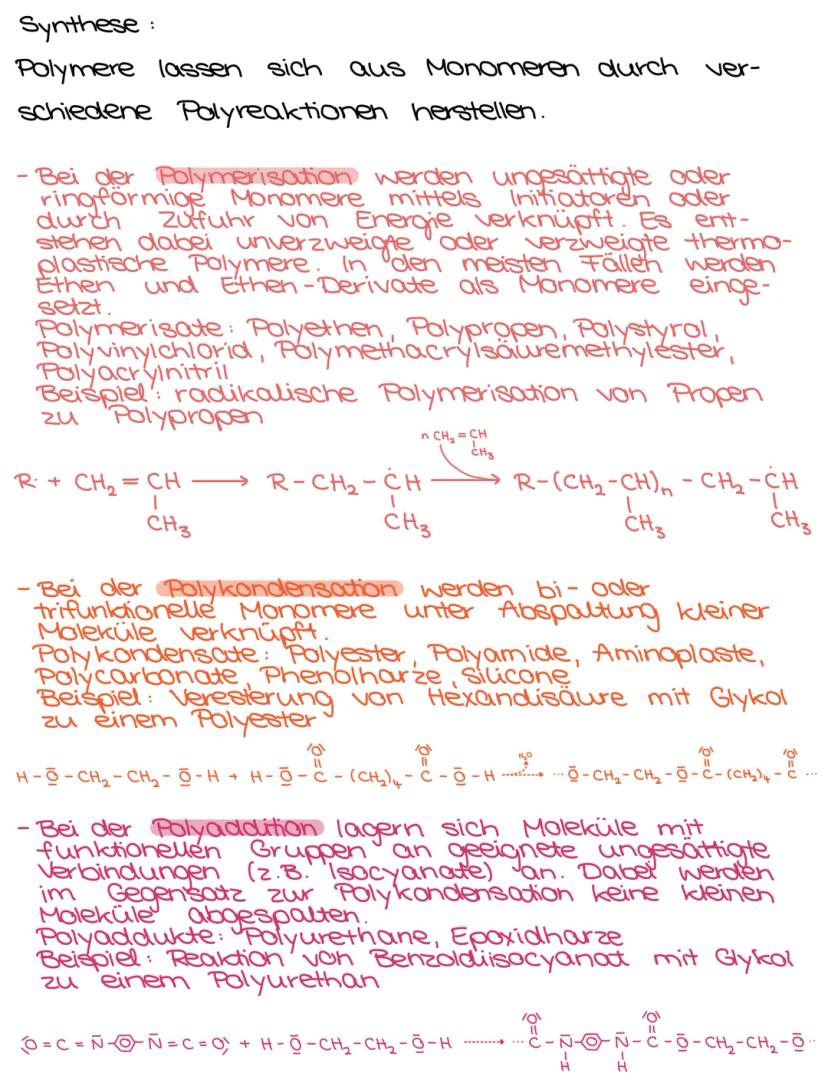 Synthese :
Polymere lassen sich aus Monomeren durch ver-
schiedene Polyreaktionen herstellen.
- Bei der Polymerisation werden ungesättigte oder
ringförmige Monomere mittels Initiatoren oder
durch Zufuhr von Energie verknüpft. Es ent-
stehen dabei unverzweigte oder verzweigte thermo-
plastische Polymere. In den meisten Fällen werden
Ethen und Ethen-Derivate als Monomere einge-
setzt.
Polymerisate: Polyethen, Polypropen, Polystyrol,
Polyvinylchlorid, Polymethacrylsäuremethylester,
Polyacrylnitril
Beispiel: radikalische Polymerisation von Propen
zu Polypropen
n CH₂ = CH
CH₃
R· + CH₂ = CH ⟶ R - CH₂ - ĊH ⟶ R-(CH₂-CH)ₙ - CH₂ - ĊH
CH₃ CH₃ CH₃ CH₃
- Bei der Polykondensation werden bi- oder
trifunktionelle Monomere unter Abspaltung kleiner
Moleküle verknüpft.
Polykondensate: Polyester, Polyamide, Aminoplaste,
Polycarbonate, Phenolharze, Silicone
Beispiel: Veresterung von Hexandisäure mit Glykol
zu einem Polyester
O O H₂O O O
H - O - CH₂ - CH₂ - O - H + H - O - C - (CH₂)₄ - C - O - H ⟶ ··· O - CH₂ - CH₂ - O - C - (CH₂)₄ - C ···
- Bei der Polyaddition lagern sich Moleküle mit
funktionellen Gruppen an geeignete ungesättigte
Verbindungen (z.B. Isocyanate) an. Dabei werden
im Gegensatz zur Polykondensation keine kleinen
Moleküle abgespalten.
Polyaddukte: Polyurethane, Epoxidharze
Beispiel: Reaktion von Benzoldiisocyanat mit Glykol
zu einem Polyurethan
O O
O = C = N - - N = C = O + H - O - CH₂ - CH₂ - O - H ⟶ ··· C - N - - N - C - O - CH₂ - CH₂ - O ···
H H